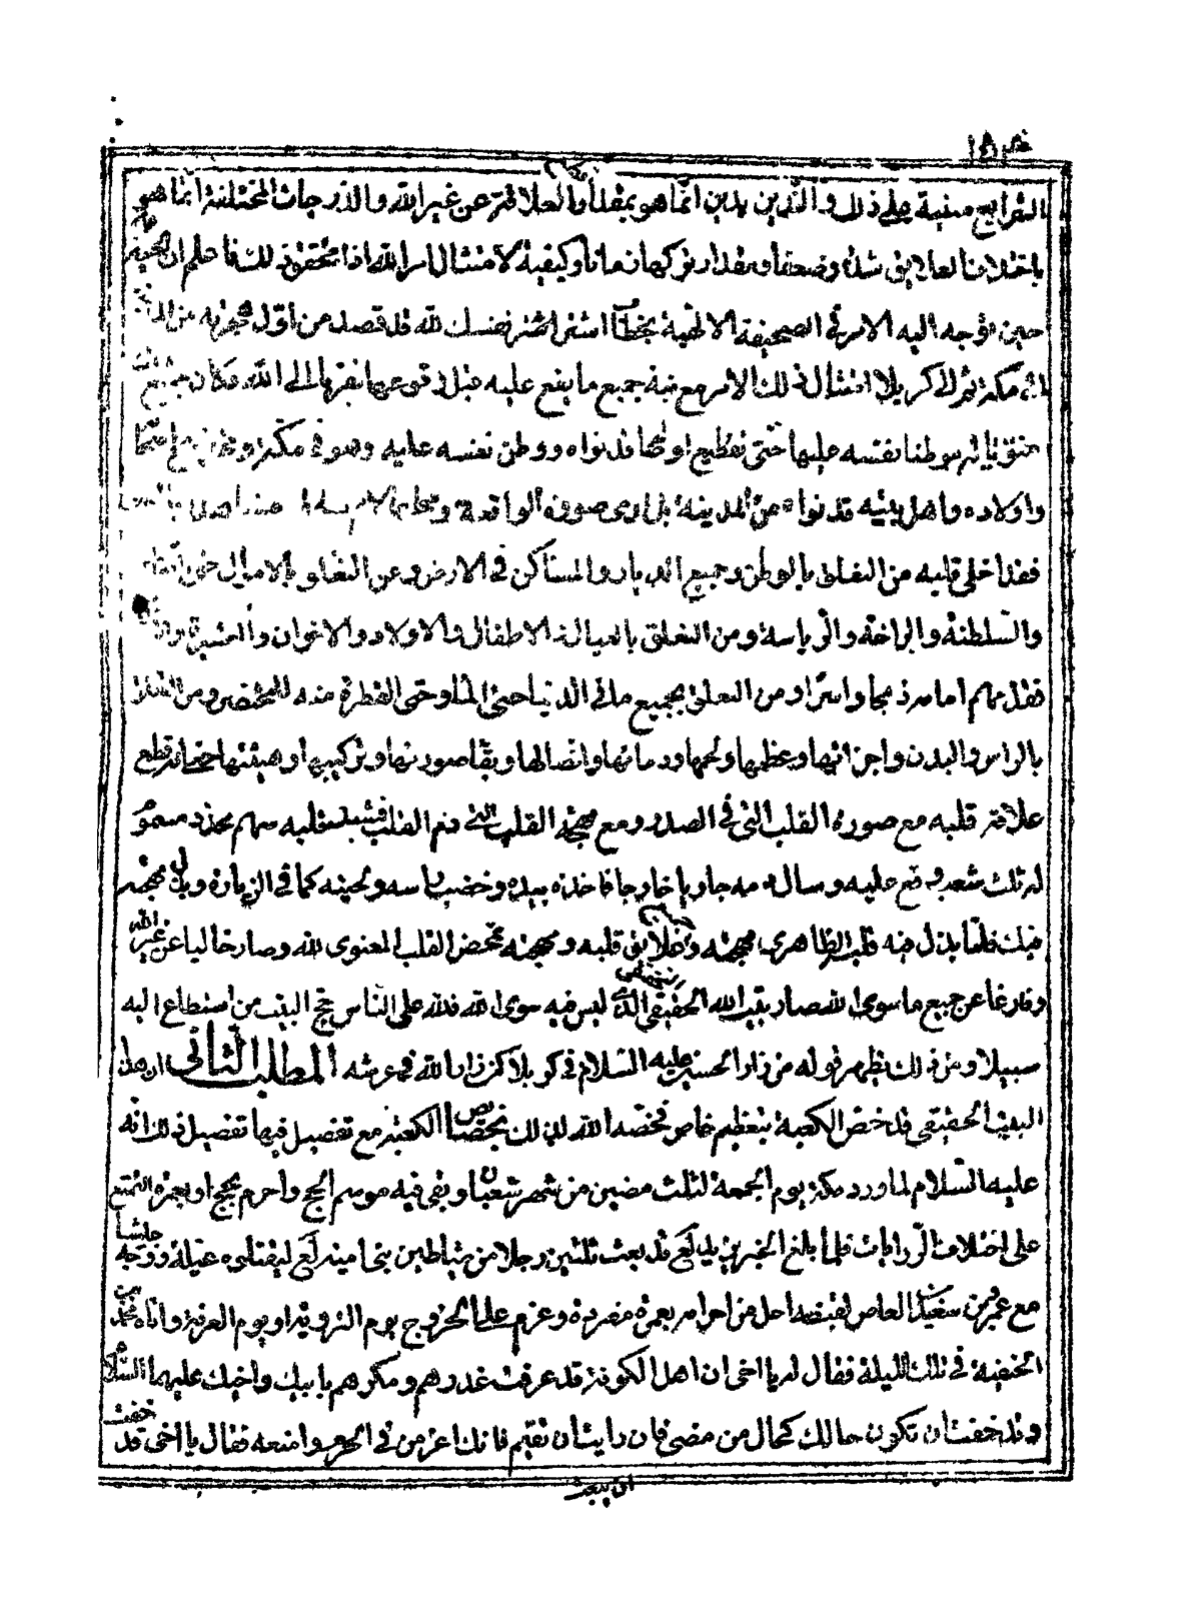 الشرايع مبنية على ذلك والتدين بدين انما هو بمقدار العلاقة عن غير الله والدرجات المختلفة انما هو
باختلاف العلايق شدة وضعفا ومقدار تركها زمانا وكيفية لامتثال امر الله اذا تحقق ذلك فاعلم ان الحسين
حين توجه اليه الامر في الصحيفة الالهية بخطاب اشتر نفسك لله قد قصد من اول
مكة ثم الى كربلا امتثال ذلك الامر مع نية جميع ما يقع عليه قبل وقوعها تقربا الى الله فكان
موطنا نفسه عليها حتى تقطيع اوصاله قد نواه ووطن نفسه عليه وهو في مكة
واولاده واهل بيته قد نواه من المدينة بل ارى صورة الواقعة
فقد اخلى قلبه من التعلق بالوطن وجميع الديار والمساكن في الارض وعن التعلق بالاموال
والسلطنة والراحة والرياسة ومن التعلق بالعيال والاطفال والاولاد والاخوان والعشيرة
ومن التعلق بجميع ما في الدنيا حتى الماء وحتى القطرة منه للمحتضر ومن التعلق
بالراس والبدن واجزائها وعظمها ولحمها ودمائها واتصالها وبقا صورتها وتركيبها وهيئتها قطع
علاقة قلبه مع صورة القلب التي في الصدر ومع مهجة القلب التي دم القلب قلبه سهم محدد مسموم
له ثلث شعب وقع عليه وسال دمه جاريا فاخذه بيده وخضب راسه ولحيته كما في الزيارة وبذل مهجته
فيك فلما بذل فيه قلبه الظاهري مهجته وعلايق قلبه ومهجته تمحض القلب المعنوى لله وصار خاليا عن غير الله
وفارغا عن جميع ما سوى الله صار بيت الله الحقيقى الذي ليس فيه سوى الله فلله على الناس حج البيت من استطاع اليه
سبيلا ومن ذلك يظهر قوله من زار الحسين عليه السلام في كربلا كمن زار الله في عرشه المطلب الثانى ان هذا
البيت الحقيقى قد خص الكعبة بتعظيم خاص فخصه الله لذلك بخصائص الكعبة مع تفضيل فيها تفصيل ذلك انه
عليه السلام لما ورد مكة يوم الجمعة لثلث مضين من شهر شعبان وبقى فيه موسم الحج واحرم بحج او بعمرة التمتع
على اختلاف الروايات فلما بلغ الخبر يزيد لع قد بعث ثلثين رجلا من شياطين بنى امية لع ليقتلوه غيلة ووجه جيشا
مع عمرو بن سعيد بن العاص لقبضه احل من احرامه بعمرة مفردة وعزم على الخروج يوم التروية او يوم العرفة واتاه محمد بن
الحنفية في تلك الليلة فقال له يا اخى ان اهل الكوفة قد عرفت غدرهم ومكرهم بابيك واخيك عليهما السلام
وقد خفت ان تكون حالك كحال من مضى فان رايت ان تقيم فانك اعز من في الحرم وامنعه فقال يا اخى قد خفت
ان يبعث